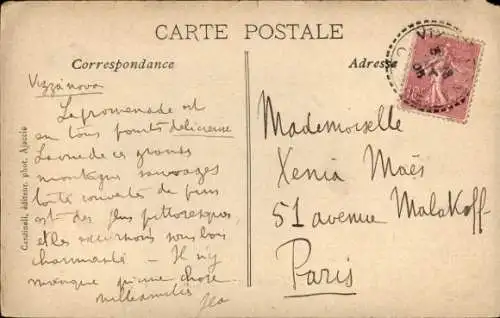 CARTE POSTALE
Correspondance
Adresse
Vizzanova
La promenade est
en tous points délicieuse
La vue de ces grands
montagnes sauvages
toute couvertes de pins
est des plus pittoresques,
et les excursions sous bois
charmantes — Il n'y
manque qu'une chose
mille amitiés
Mademoiselle
Xenia Maës
51 avenue Malakoff
Paris
Cardinali, éditeur, phot. Ajaccio